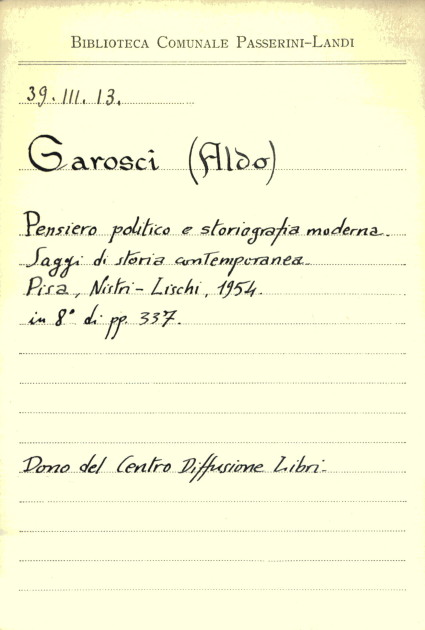 BIBLIOTECA COMUNALE PASSERINI-LANDI
39. III. 13.
Garosci (Aldo)
Pensiero politico e storiografia moderna.
Saggi di storia contemporanea.
Pisa, Nistri-Lischi, 1954.
in 8° di pp. 337.
Dono del Centro Diffusione Libri.